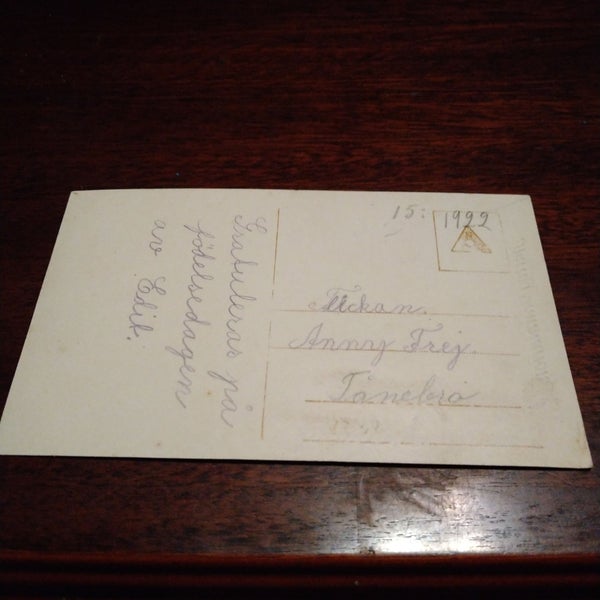 Gratuleras på
födelsedagen
av Edit.
15: 1922
Fröken.
Anny Frej.
Tånebro